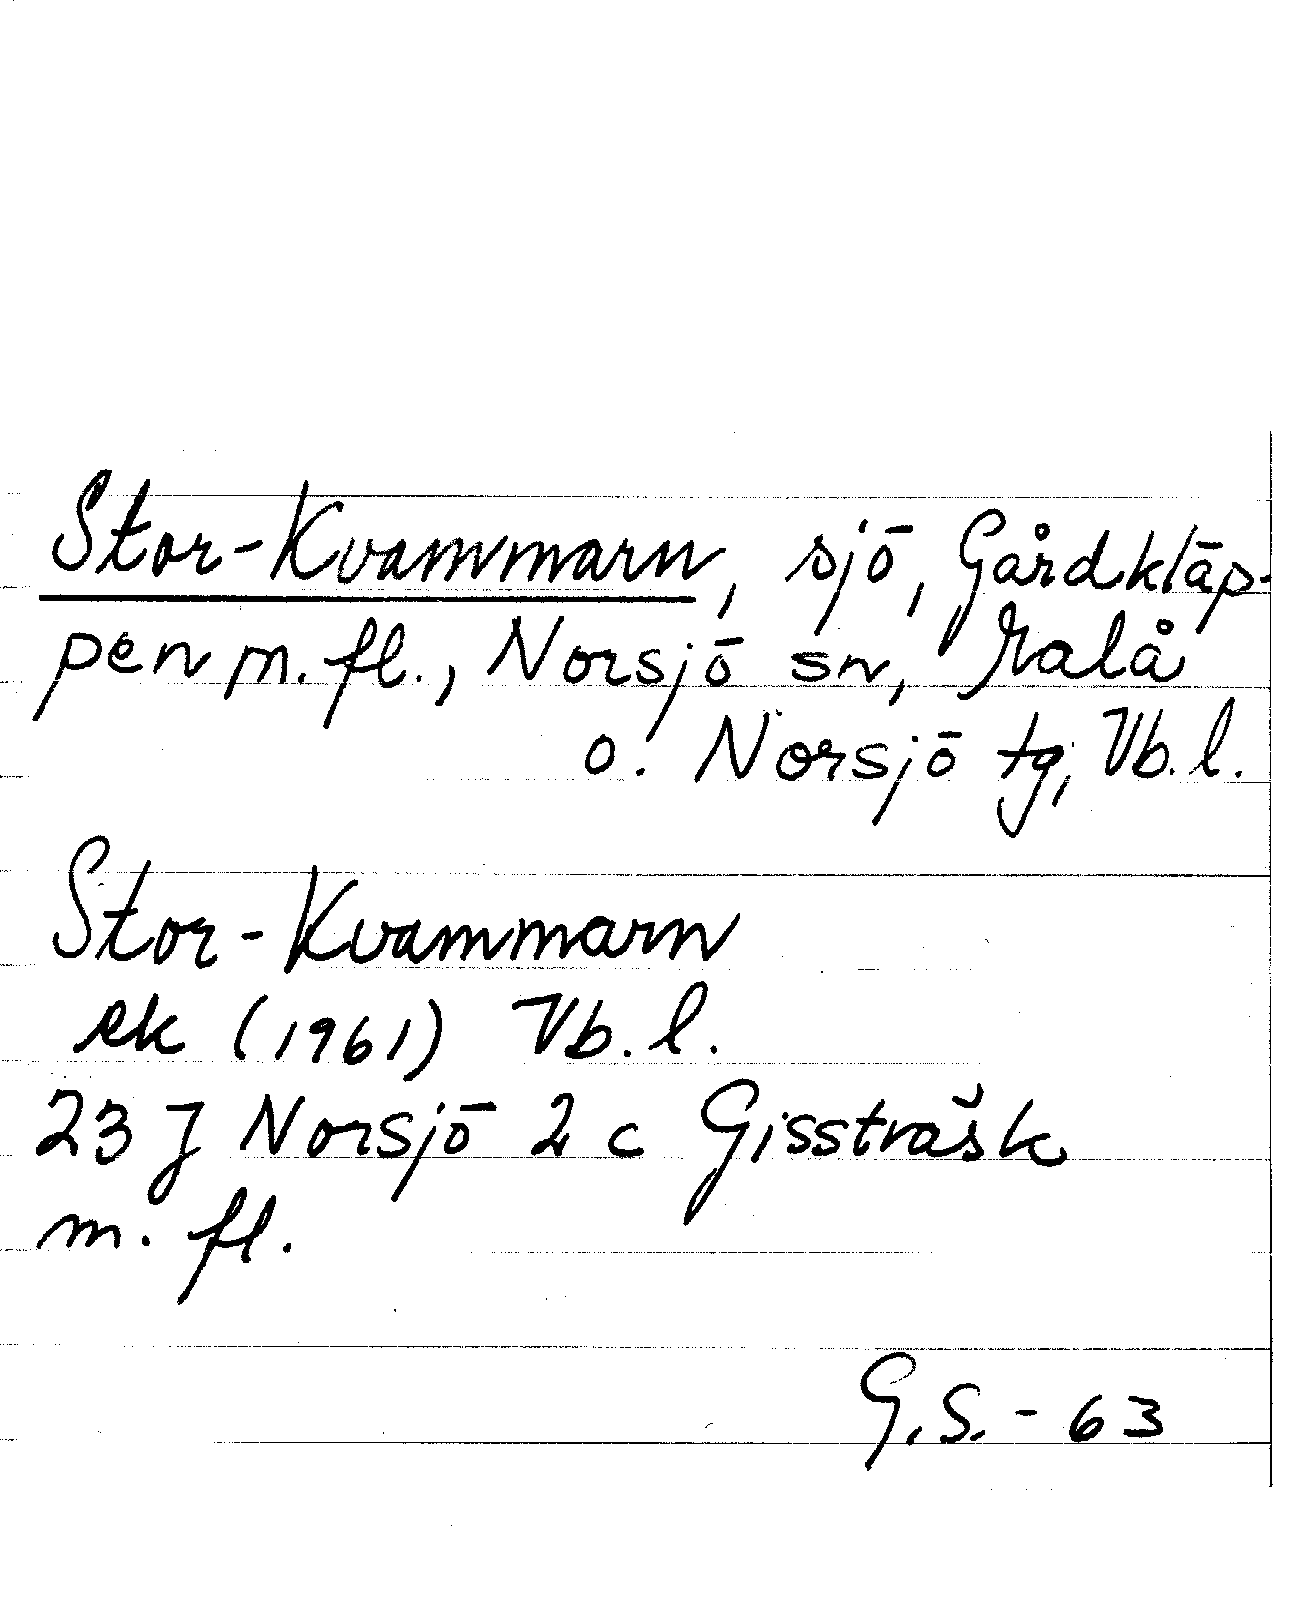 Stor-Kvammarn, sjö, Gårdkläp-
pen m. fl., Norsjö sn, Malå
o. Norsjö tg, Vb. l.
Stor-Kvammarn
ek (1961) Vb. l.
23 J Norsjö 2 c Gissträsk
m. fl.
G.S. - 63